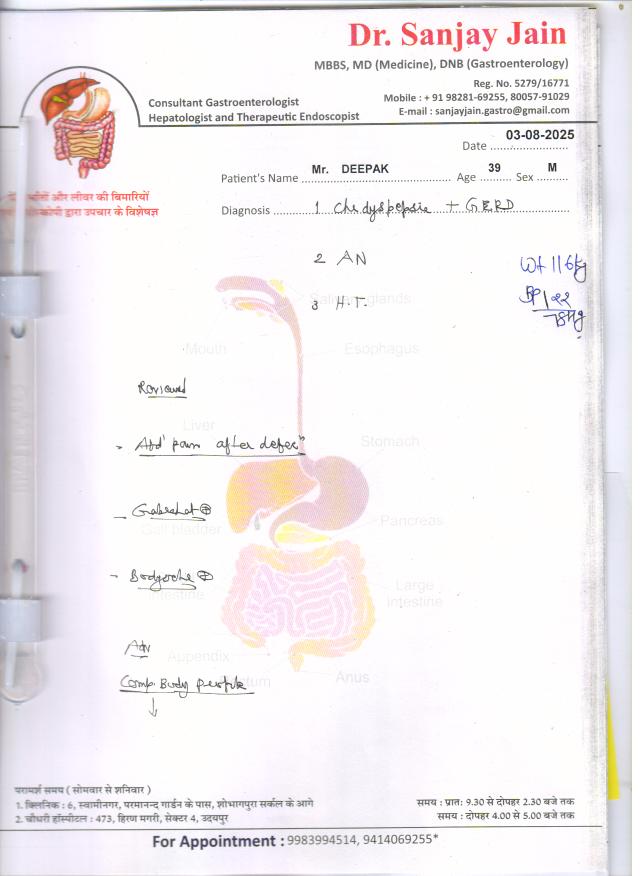 Dr. Sanjay Jain
MBBS, MD (Medicine), DNB (Gastroenterology)
Reg. No. 5279/16771
Mobile : + 91 98281-69255, 80057-91029
E-mail : sanjayjain.gastro@gmail.com
Consultant Gastroenterologist
Hepatologist and Therapeutic Endoscopist
03-08-2025
Date
Patient's Name Mr. DEEPAK Age 39 Sex M
आँतों और लीवर की बिमारियों
द्वारा उपचार के विशेषज्ञ
Diagnosis 1 Chr dyspepsia + GERD
2 AN
Wt 116kg
3 H.T.
BP 122
Salivary glands
Mouth
Esophagus
Reviewed
Liver
- Abd pain after defecn
Stomach
Gall bladder
Pancreas
- Bodyache ⊕
Large
Intestine
intestine
Adv
Appendix
Comp. Body profile
Rectum
Anus
↓
परामर्श समय ( सोमवार से शनिवार )
1. क्लिनिक : 6, स्वामीनगर, परमानन्द गार्डन के पास, शोभागपुरा सर्कल के आगे
समय : प्रातः 9.30 से दोपहर 2.30 बजे तक
2. चौधरी हॉस्पीटल : 473, हिरण मगरी, सेक्टर 4, उदयपुर
समय : दोपहर 4.00 से 5.00 बजे तक
For Appointment : 9983994514, 9414069255*